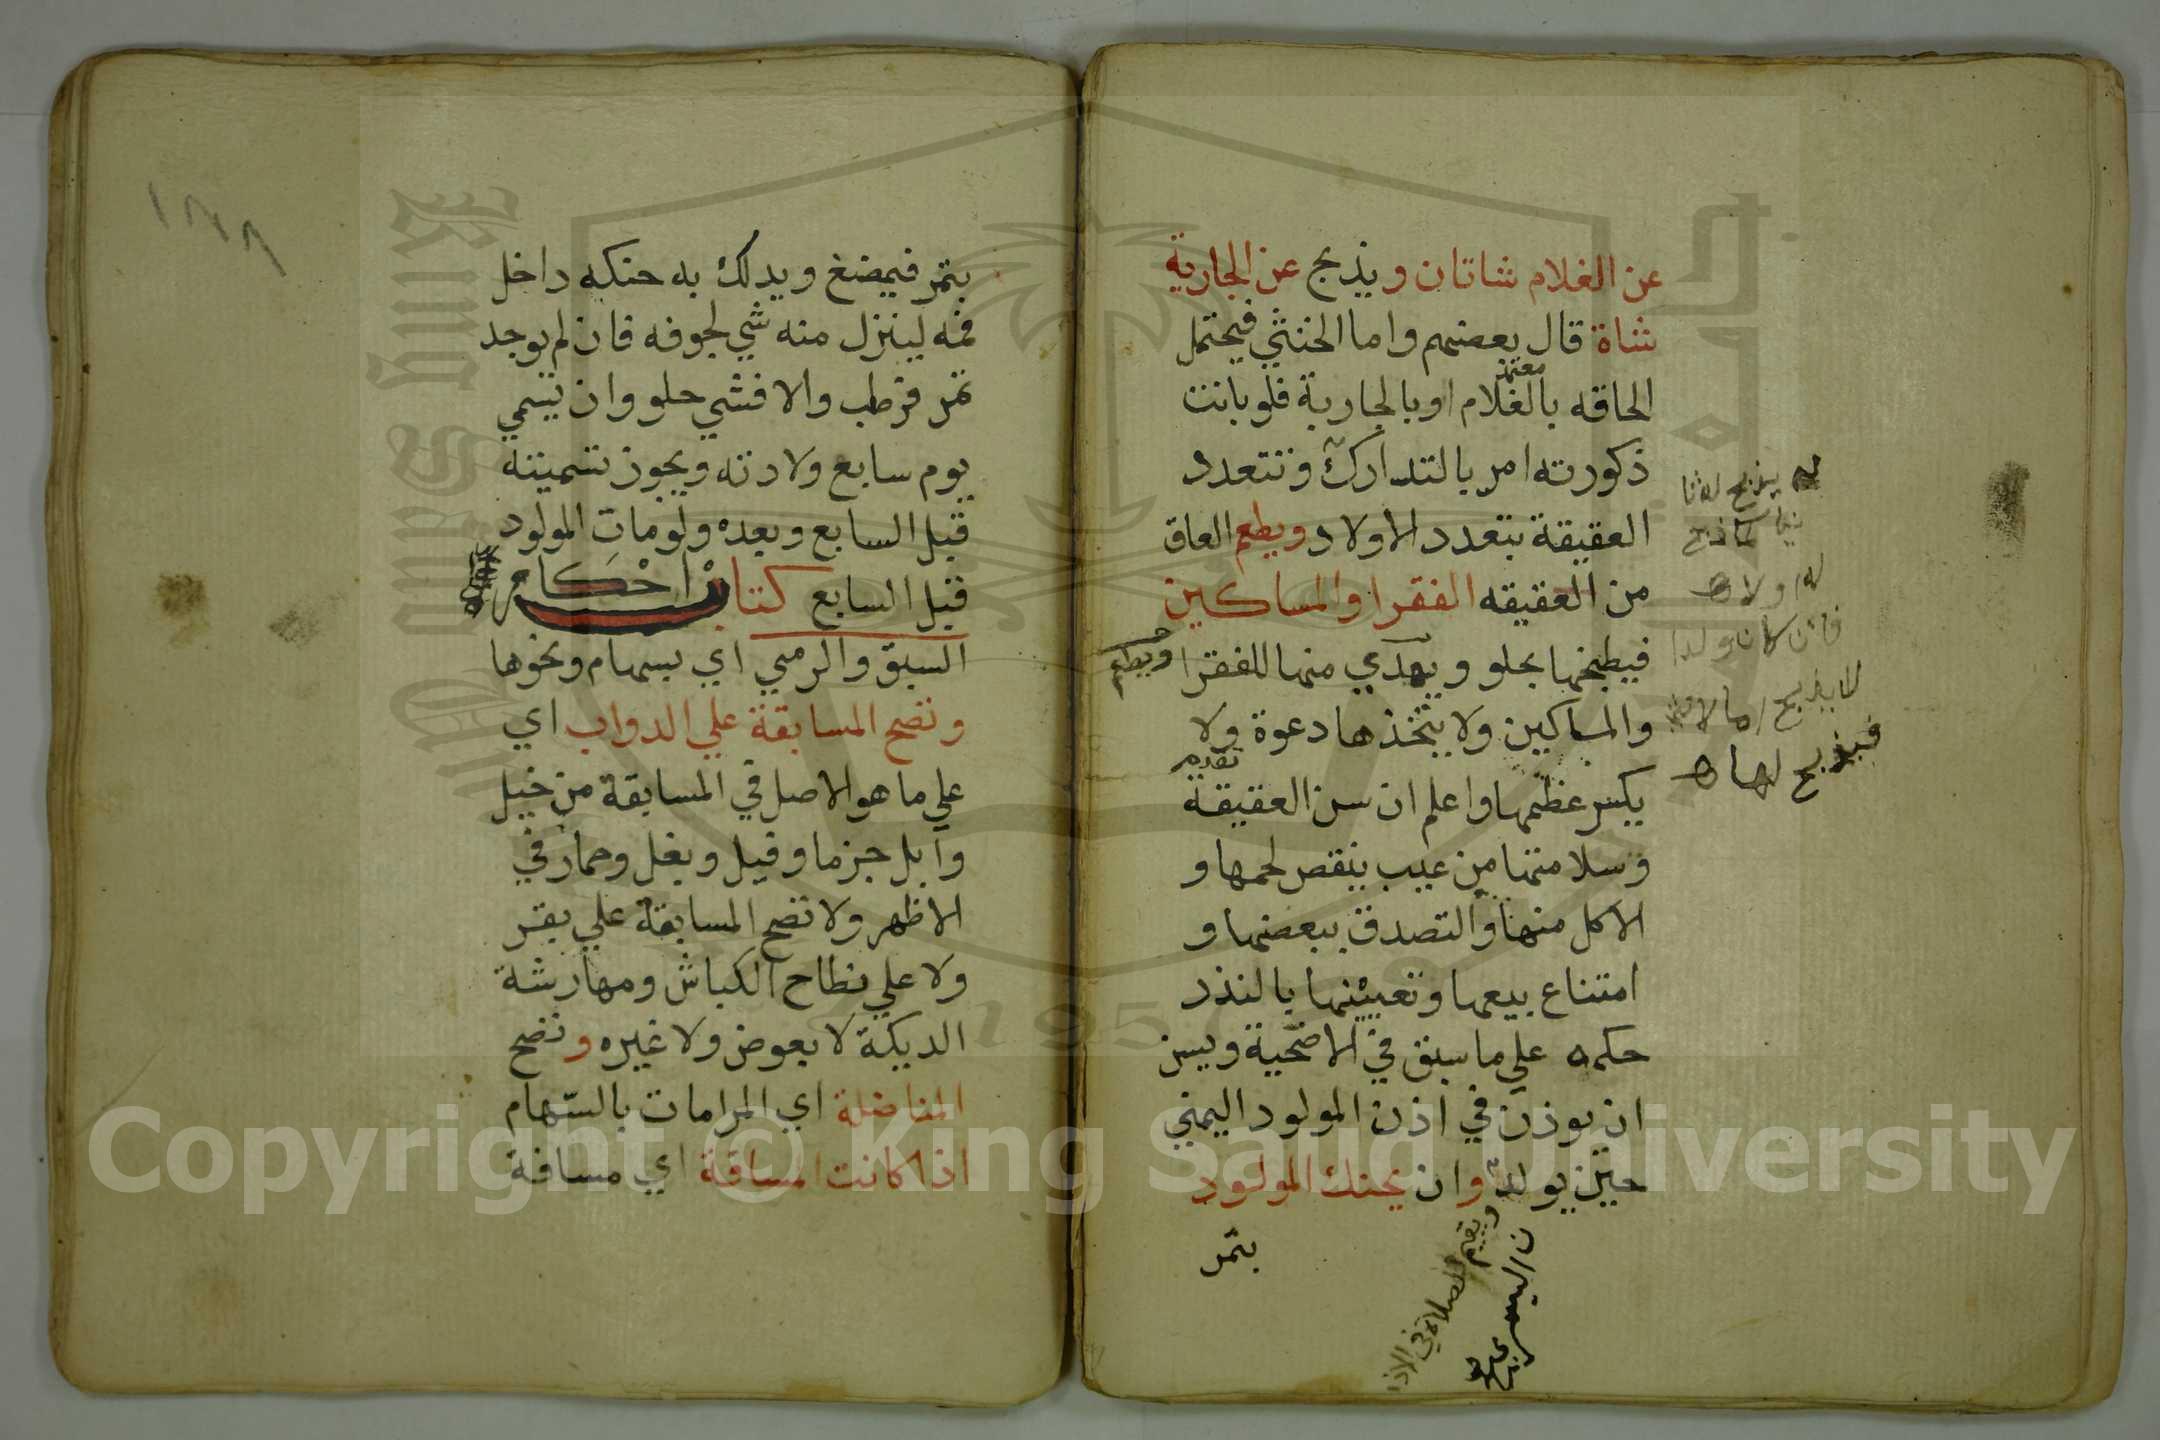 عن الغلام شاتان ويذبح عن الجارية
شاة قال بعضهم واما الخنثي فيحتمل
الحاقه بالغلام او بالجارية فلو بانت
معتمد
ذكورته امر بالتدارك وتتعدد
العقيقة بتعدد الاولاد ويطعم العاق
من العقيقه الفقرا والمساكين
فيطبخها بحلو ويهدي منها للفقرا
والمساكين ولا يتخذها دعوة ولا
يكسر عظمها واعلم ان سن العقيقة
تقدم
وسلامتها من عيب ينقص لحمها و
الاكل منها والتصدق ببعضها و
امتناع بيعها وتعيينها بالنذر
حكمه علي ما سبق في الاضحية ويسن
ان يوذن في اذن المولود اليمني
حين يولد وان يحنك المولود
بتمر
ويقيم الصلاة في الاذ
ن اليسري
لا يذبح اما لا
فيذبح لها
بتمر فيمضغ ويدلك به حنكه داخل
فمه لينزل منه شي لجوفه فان لم يوجد
تمر فرطب والا فشي حلو وان يسمي
يوم سابع ولادته ويجوز تسميته
قبل السابع وبعده ولو مات المولود
قبل السابع كتاب احكام
السبق والرمي اي بسهام ونحوها
وتصح المسابقة علي الدواب اي
علي ما هو الاصل في المسابقة من خيل
وابل جزما وفيل وبغل وحمار في
الاظهر ولا تصح المسابقة علي بقر
ولا علي نطاح الكباش ومهارشة
الديكة لا بعوض ولا غيره وتصح
المناضلة اي المرامات بالسهام
اذا كانت المسافة اي مسافة
١٨٨
Copyright © King Saud University
King Saud University
1957